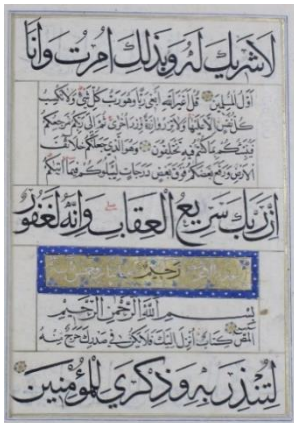 لَا شَرِيكَ لَهُ وَبِذَلِكَ اُمِرْتُ وَاَنَا
اَوَّلُ الْمُسْلِمِينَ قُلْ اَغَيْرَ اللَّهِ اَبْغِي رَبًّا وَهُوَ رَبُّ كُلِّ شَيْءٍ وَلَا تَكْسِبُ
كُلُّ نَفْسٍ اِلَّا عَلَيْهَا وَلَا تَزِرُ وَازِرَةٌ وِزْرَ اُخْرَى ثُمَّ اِلَى رَبِّكُمْ مَرْجِعُكُمْ
فَيُنَبِّئُكُمْ بِمَا كُنْتُمْ فِيهِ تَخْتَلِفُونَ وَهُوَ الَّذِي جَعَلَكُمْ خَلَائِفَ
الْاَرْضِ وَرَفَعَ بَعْضَكُمْ فَوْقَ بَعْضٍ دَرَجَاتٍ لِيَبْلُوَكُمْ فِي مَا اٰتٰيكُمْ
اِنَّ رَبَّكَ سَرِيعُ الْعِقَابِ وَاِنَّهُ لَغَفُورٌ
رَحِيمٌ
بِسْمِ اللَّهِ الرَّحْمَنِ الرَّحِيمِ
المص كِتَابٌ اُنْزِلَ اِلَيْكَ فَلَا يَكُنْ فِي صَدْرِكَ حَرَجٌ مِنْهُ
لِتُنْذِرَ بِهِ وَذِكْرَى لِلْمُؤْمِنِينَ